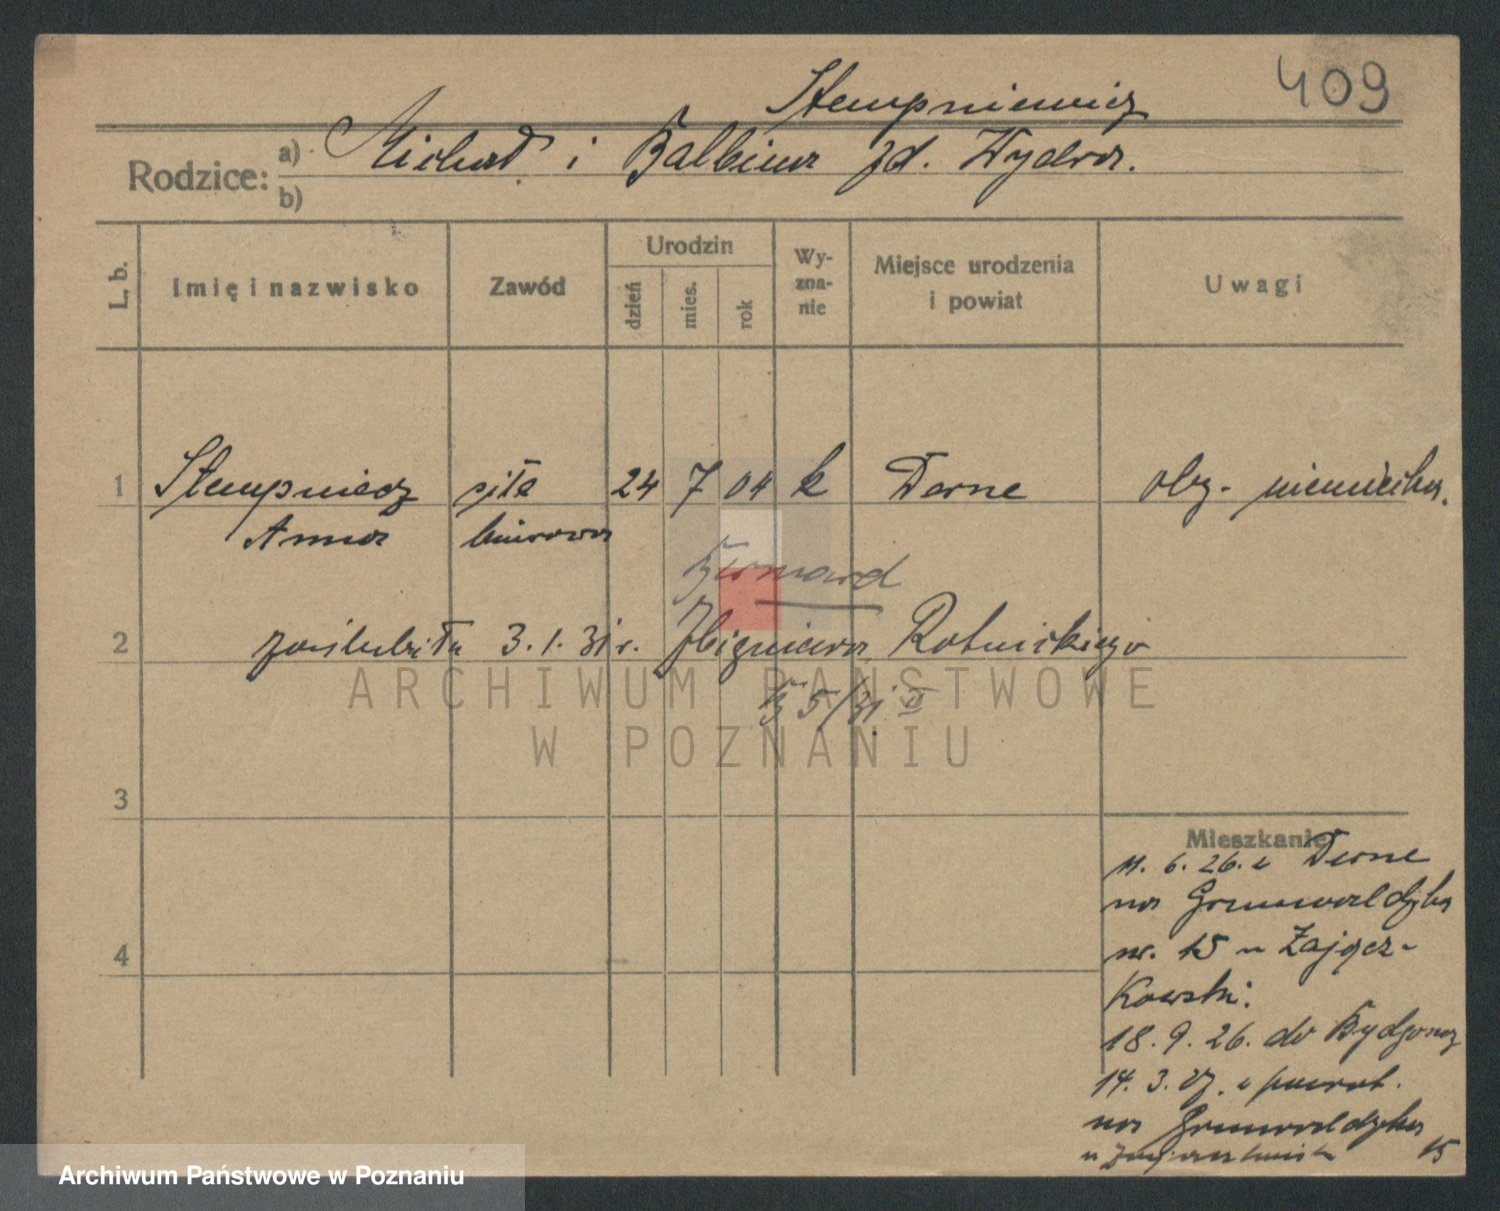 409
Stempniewicz
Rodzice: a) Michał i Balbina zd. Wydra.
b)
L. b. Imię i nazwisko Zawód Urodzin dzień mies. rok Wyznanie Miejsce urodzenia i powiat Uwagi
1 Stempniewicz siła 24 7 04 k Derne oby. niemiecka.
Anna biurowa
Bernard
2 zaślubiła 3.1.31 r. Zbigniewa Rotnickiego
5/31 II
3
Mieszkanie
11. 6. 26. z Derne
na Grunwaldzka
4
nr. 15 u Zającz-
kowski.
18. 9. 26. do Bydgoszcz
14. 3. 27. z powrot.
na Grunwaldzka
u 15
ARCHIWUM PAŃSTWOWE
W POZNANIU
Archiwum Państwowe w Poznaniu